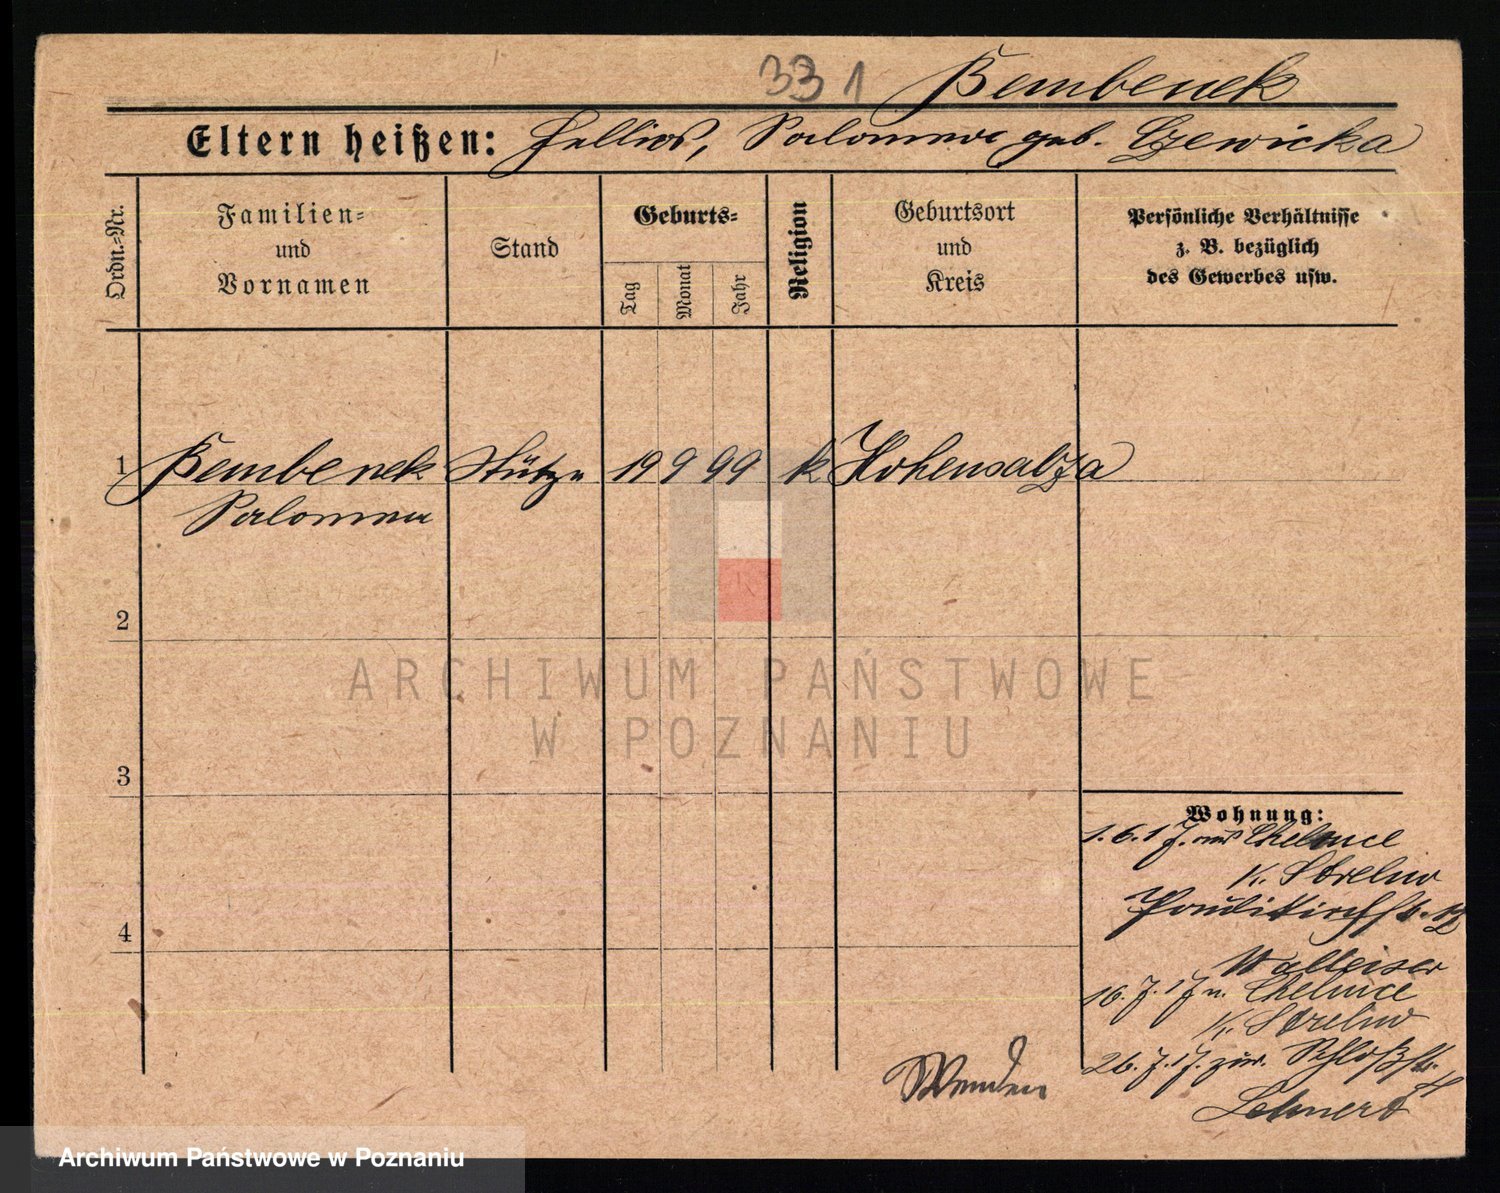 33 1 Bembenek
Eltern heißen: Fellix, Salomea geb. Czewicka
Ordn.-Nr.
Familien-
und
Vornamen
Stand
Geburts-
Tag
Monat
Jahr
Religion
Geburtsort
und
Kreis
Persönliche Verhältnisse
z. B. bezüglich
des Gewerbes usw.
1 Bembenek Stütze 19 9 99 k Hohensalza
Salomea
2
3
4
ARCHIWUM PAŃSTWOWE
W POZNANIU
Wohnung:
1. 6. 17. aus Chelmce
K. Strelno
Walleiser
16. 7. 17 n. Chelmce
K. Strelno
26. 7. 17. zur. Schloßstr.
Lehnert
Wenden
Archiwum Państwowe w Poznaniu